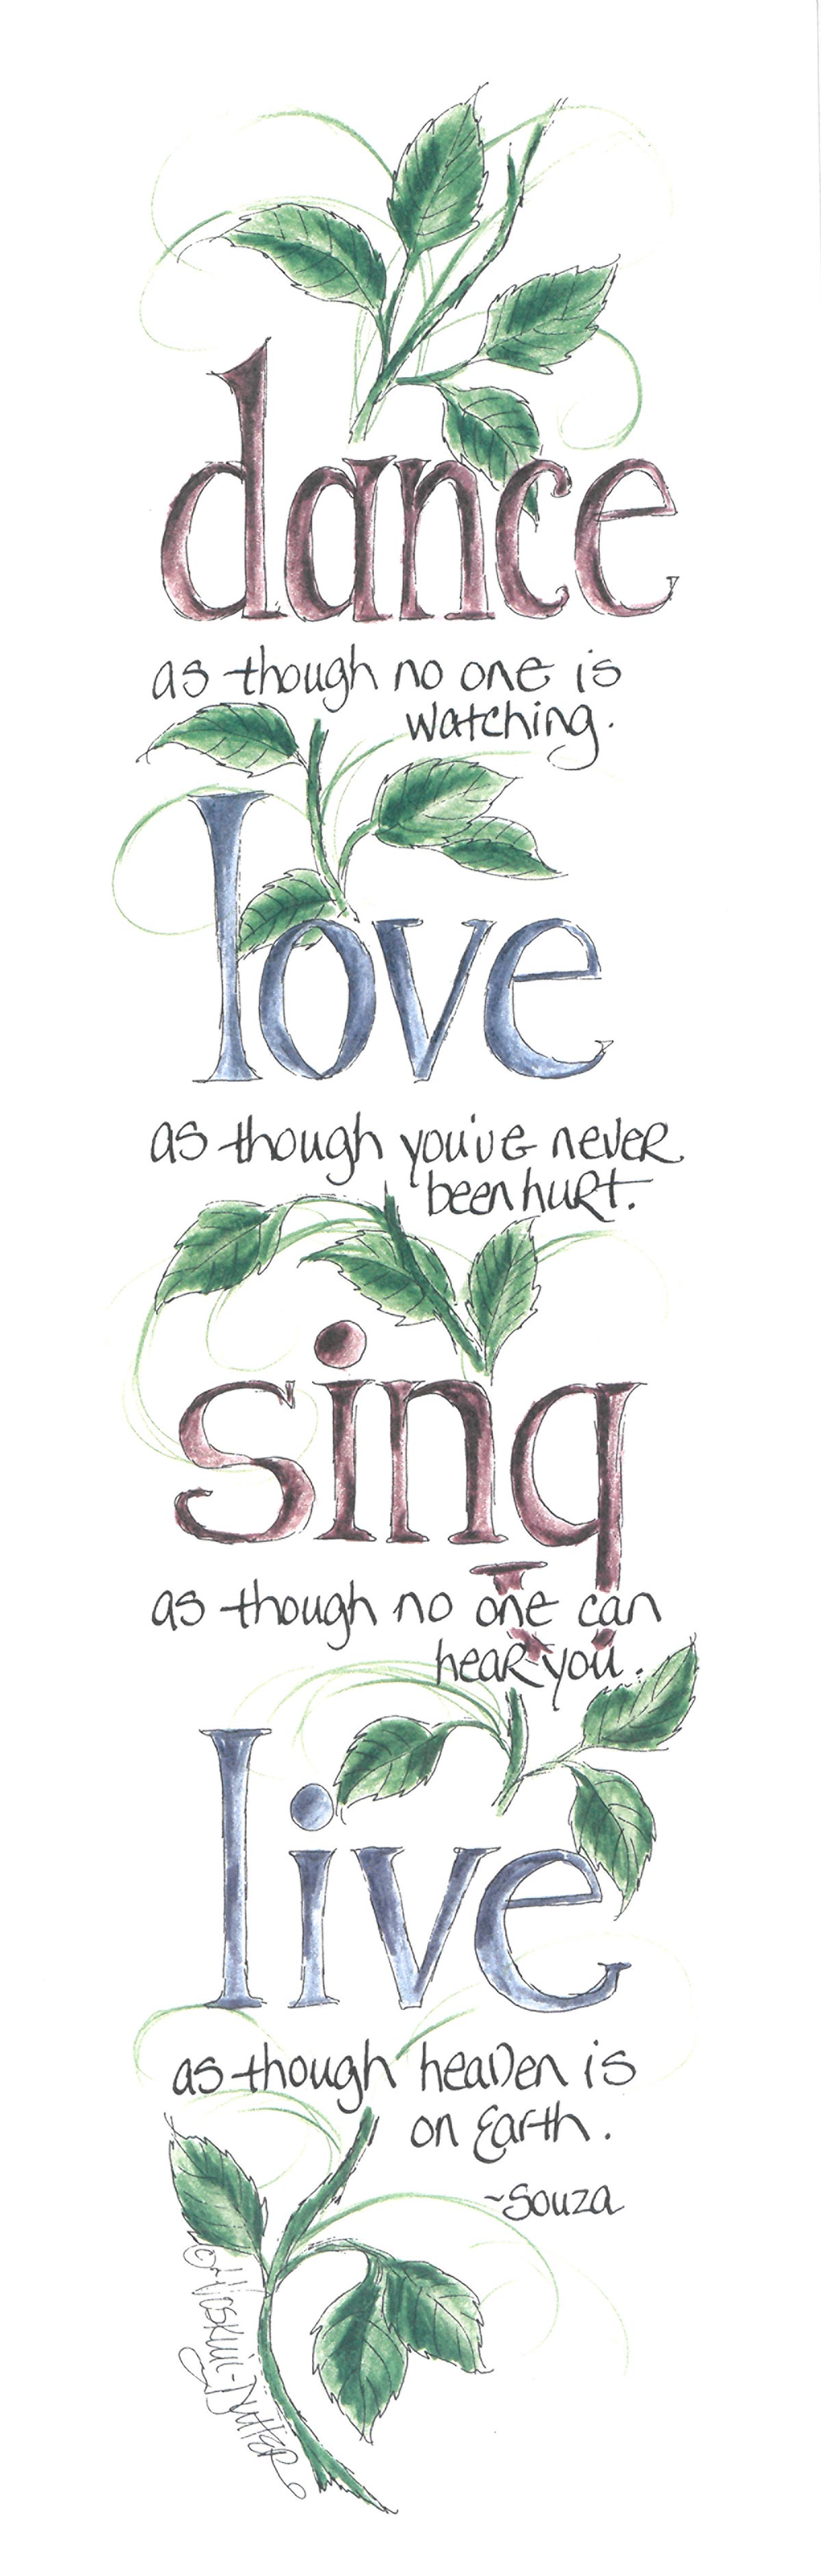 dance
as though no one is
watching.
love
as though you've never
been hurt.
sing
as though no one can
hear you.
live
as though heaven is
on Earth.
~Souza